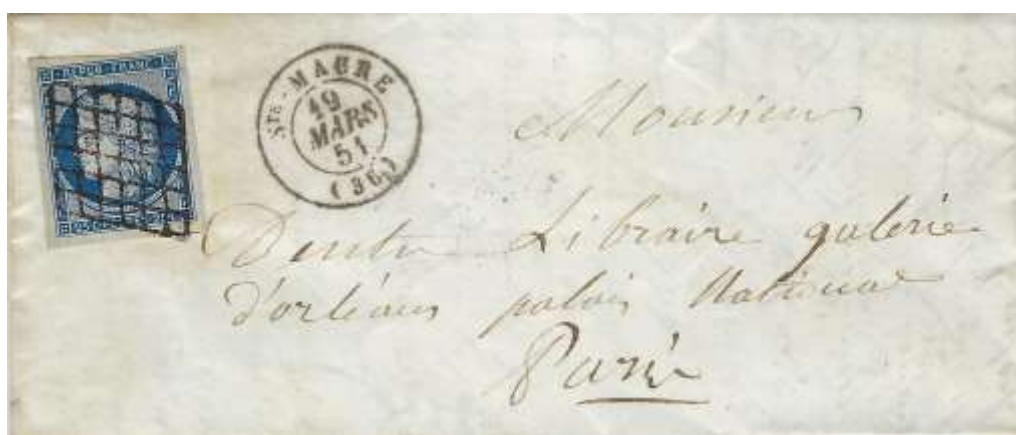 REPUB · FRANC ·
25
STE-MAURE
19
MARS
51
(36)
Monsieur
Dentu Libraire galerie
d'orléans palais National
Paris